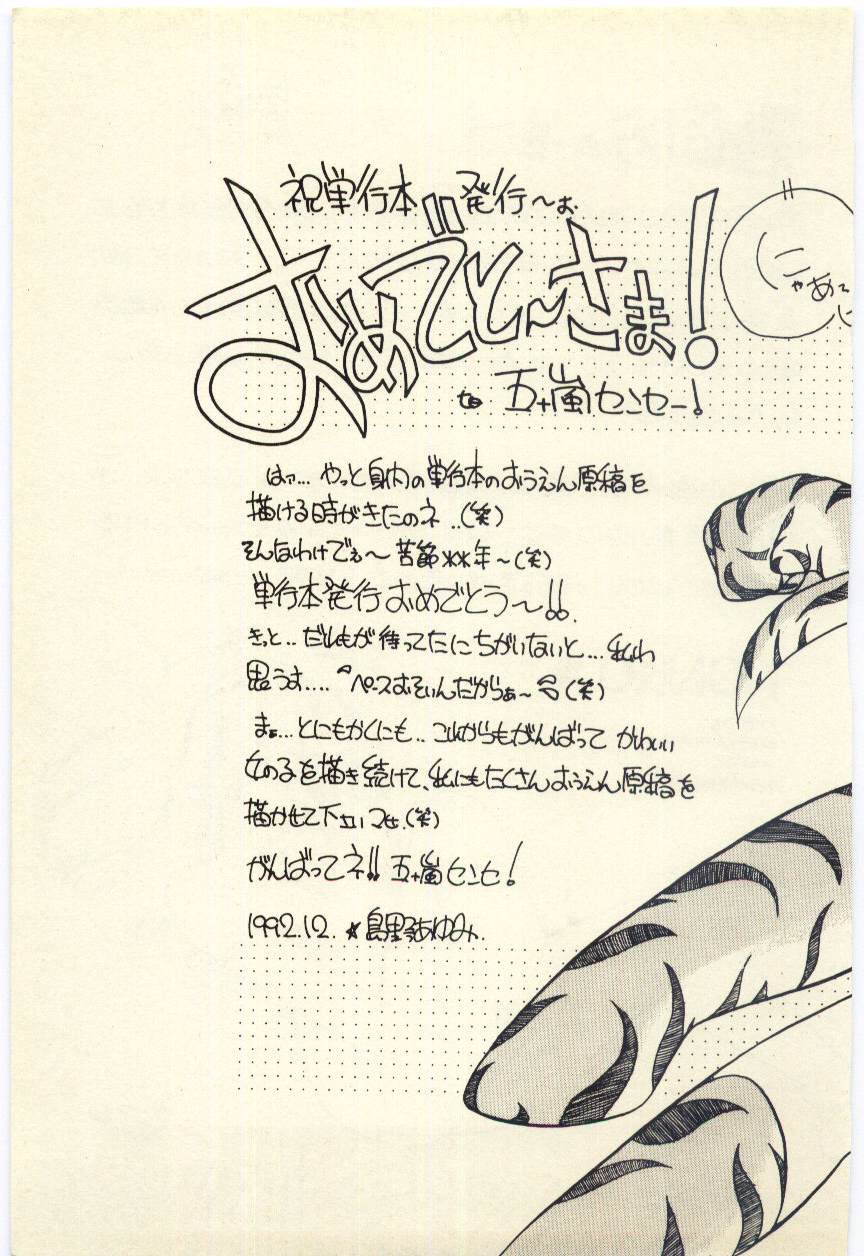 祝単行本 発行〜ぉ
おめでと〜さま!
to 五十嵐センセー!
にゃあ
はァ… やっと身内の単行本のおうえん原稿を
描ける時がきたのネ‥(笑)
そんなわけでぇ〜 苦節**年〜(笑)
単行本発行おめでとう〜!!
きっと‥だれもが待ってたにちがいないと…私わ
思うす‥‥ペースおそいんだからぁ〜(笑)
まぁ…とにもかくにも‥これからもがんばって かわいい
女の子を描き続けて、私にもたくさんおうえん原稿を
描かせて下さいませ.(笑)
がんばってネ!! 五十嵐センセ!
1992.12. ☆島野あゆみ.